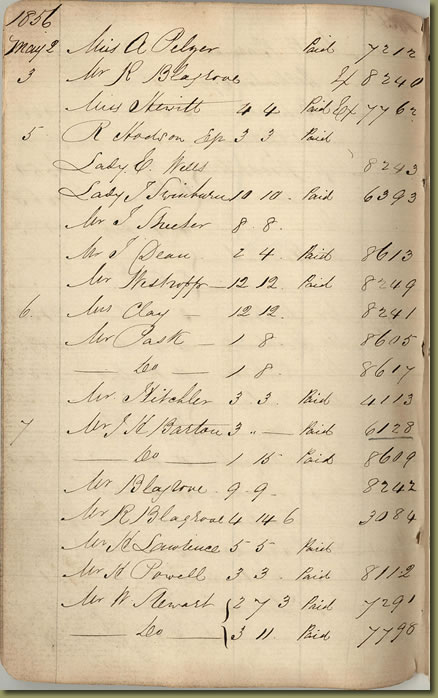 1856
May 2 Miss A Pelzer Paid 7212
3 Mr R Blagrove Ex 8240
Miss Hewitt 4 4 Paid Ex 7762
5 R Hodson Esq 3 3 Paid
Lady C. Wells 8243
Lady J Swinburn 10 10 . Paid 6393
Mr J 8 . 8 .
Mr J Dean 2 4 Paid 8613
Mr Westropp — 12 12 . Paid 8249
6 Mrs Clay — 12 12 . 8241
Mr Pask — 1 8 8605
— Do — 1 8 8617
Mr. Hitchler 3 3 . Paid 4113
7 Mr J H Barton 3 " — Paid 6128
— Do — 1 15 Paid 8609
Mr Blagrove . 9 . 9 . 8242
Mr R Blagrove 4 14 6 3084
Mr H Lawrence 5 5 Paid
Mr H Powell 3 3 . Paid 8112
Mr W Stewart { 2 7 3 Paid 7291
— Do — 3 11 . Paid 7798